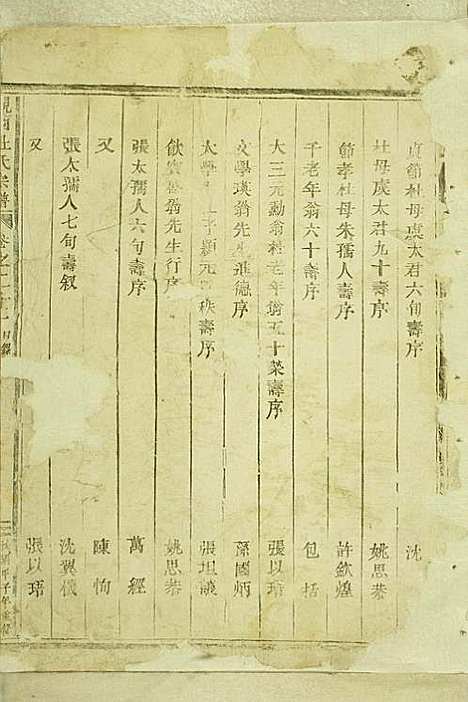 貞節杜母虞太君六旬壽序 沈
杜母虞太君九十壽序 姚思
節孝杜母朱孺人壽序 許欽煌
千老年翁六十壽序 包括
大三元勳翁杜老年翁五十榮壽序 張以瑫
文學瑛翁先生進德序 孫國炳
太學 穎元 秩壽序 張坦
飲賓 翁先生行序 姚思
張太孺人六旬壽序 萬經
又 陳恂
張太孺人七旬壽叙 沈翼儀
又 張以瑫
杜氏宗譜